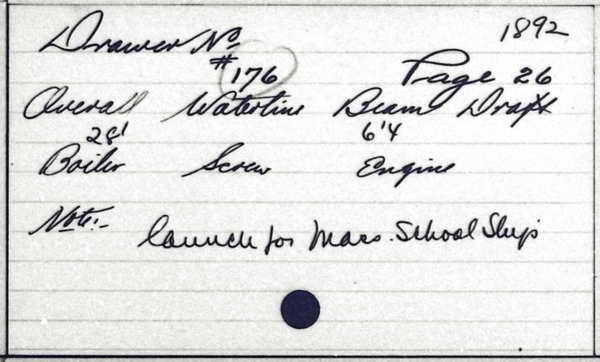 Drawer No. 1892
#176 Page 26
Overall Waterline Beam Draft
28' 6'4
Boiler Screw Engine
Note:- launch for Mass. School Ship